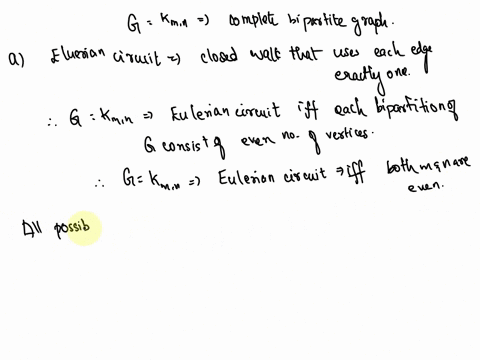 G = Km,n => complete bipartite graph.
a) Eluerian circuit => closed walk that uses each edge
exactly one.
∴ G = Km,n => Eulerian circuit iff each bipartition of
G consist of even no. of vertices.
∴ G = Km,n => Eulerian circuit => iff both m & n are
even.
All possib